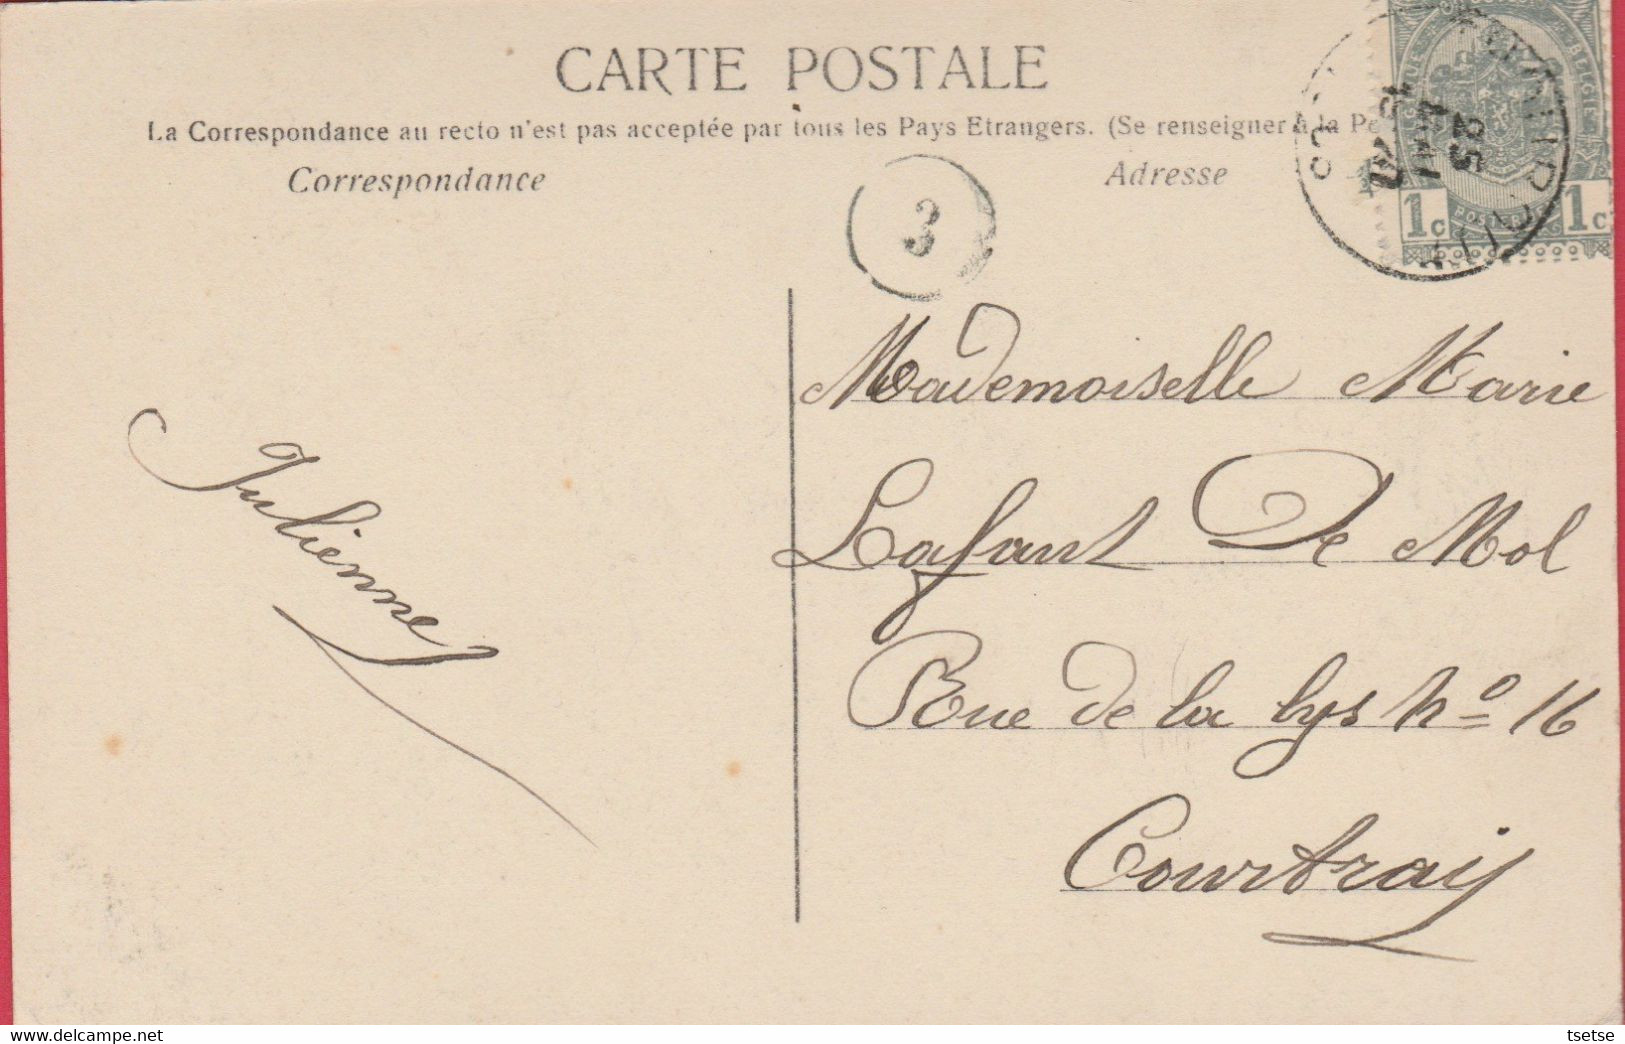 CARTE POSTALE
La Correspondance au recto n'est pas acceptée par tous les Pays Etrangers. (Se renseigner à la
Correspondance
Adresse
3
25
1c POSTERIJEN 1c
BELGIE
Mademoiselle Marie
Lafant De Mol
Rue de la Lys No 16
Courtray
Julienne
www.delcampe.net
tsetse